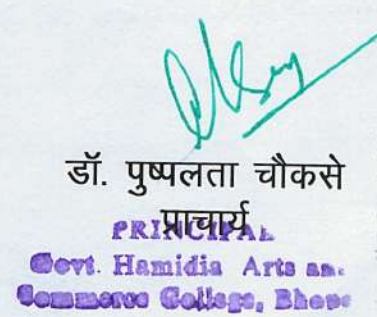 डॉ. पुष्पलता चौकसे
प्राचार्य
PRINCIPAL
Govt. Hamidia Arts an
Commerce College, Bhop